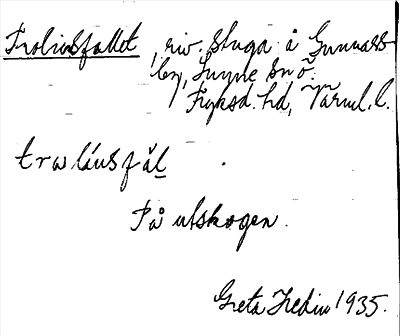 Trolinsfallet, riv. stuga å Gunnars-
by, Lysne sn ö.
Fryksd. hd, Värml. l.
trωlíusfăl
På utskogen.
Greta Hedin 1935.